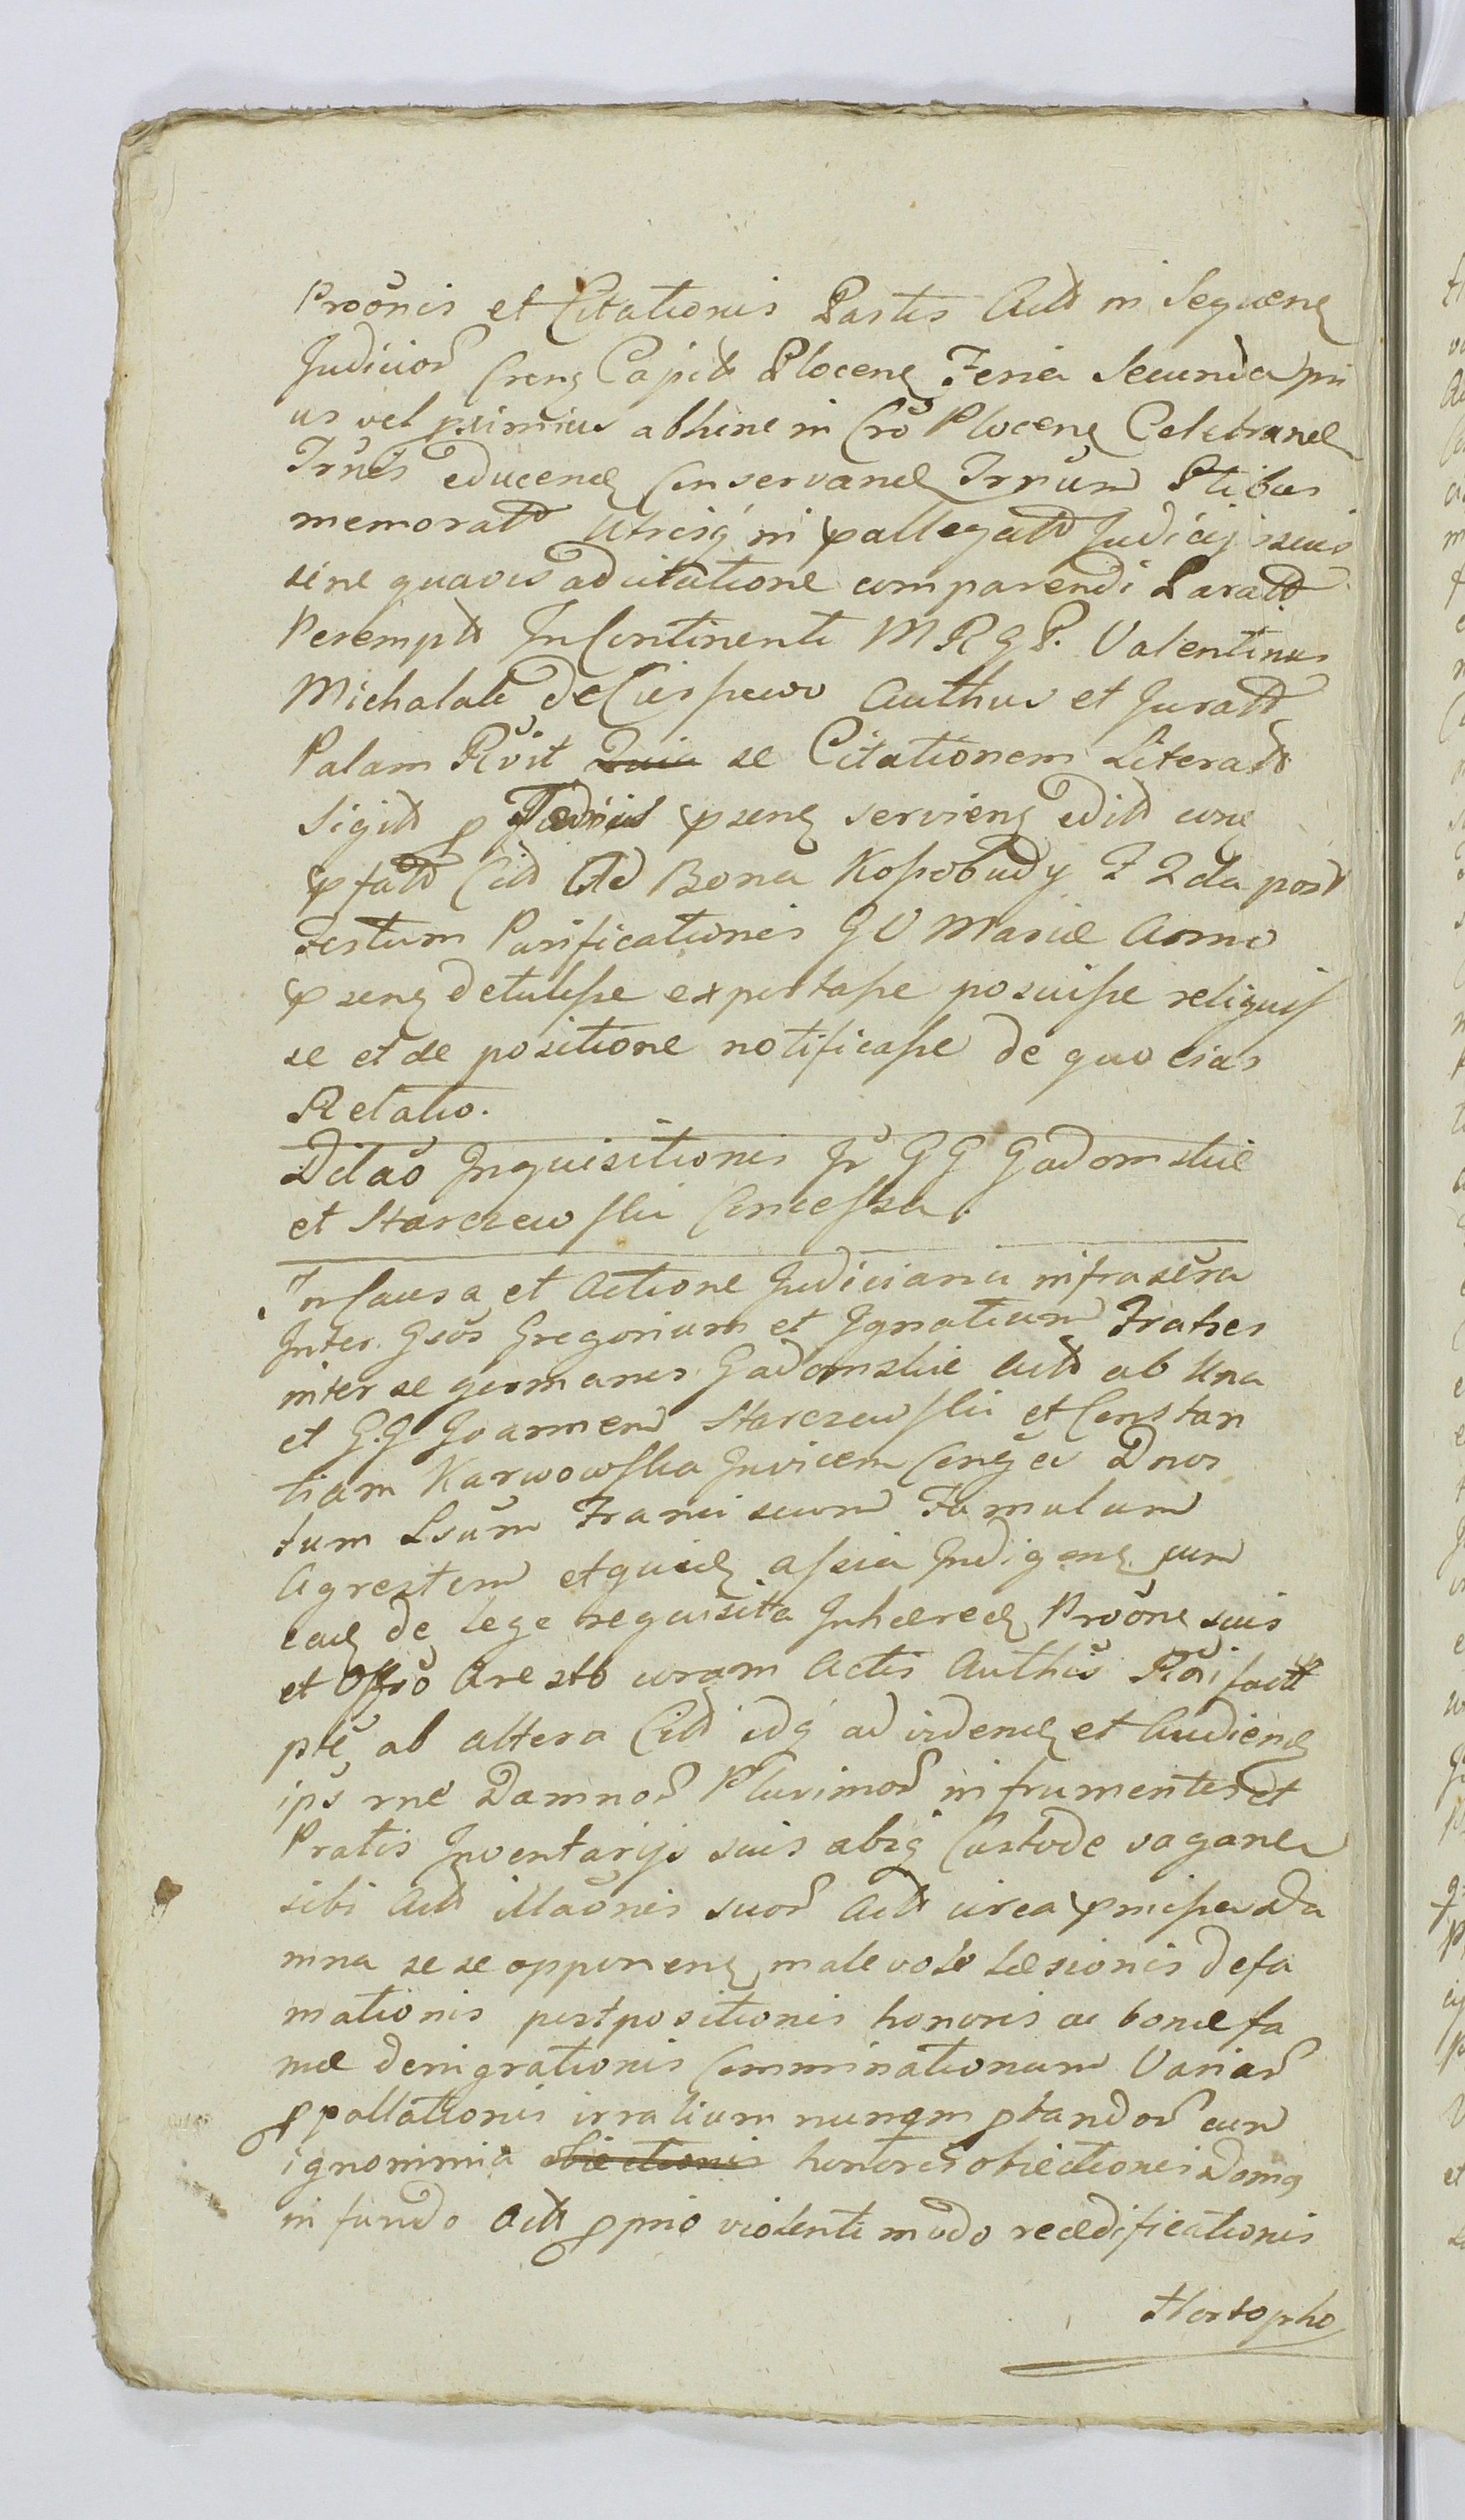 Proõnis et Citationis Partis Actt in Sequenę
Judicior Crens Capitt Plocenę Feria Secunda pri
us vel primius abhinc in Crõ Plocenę Celebranđ
Trnĩs educenđ Conservanđ Trnum Ptibus
memoratt Utrisq in pallegatt Judicijs suis
sine quavis adcitatione comparendi Paratt
Perempt InContinenti M R G P. Valentinus
Michalak de authus et Juratt
Palam Rvĩt se Citationem Literatt
Sigitt p pseng servieng editt
pfatt Citt Ad Bona Kosobudy F 2da post
Festum Purificationis G V Mariæ Anno
pseng detulisse exportasse posuisse reliquis
se et de positione notificasse de quo eius
Relatio.
Dilaõ Inquisitionis Jr G G Gadomskie
et Starczewski Concessa.
In Causa et Actione Judiciaria infrascra
Inter Gsõs Gregorium et Ignatium Fratres
inter se germanos Gadomskie Actt ab Una
et G.G Joannem Starczewski et Constan
tiam Karwowska Invicem Conges Dnos
tum Lsum Franciscum Famulum
Agrestem etquidę assia Indigenę cum
eaę de lege requisita Inhæreę Proõne suis
et Offrõ Aresto coram Actis Authis Rõi factt
ptẽ ab altera Citt idq ad videnđ et Audienđ
ips rne Damnor Plurimor in frumentis et
Pratis Inventarijs suis absq Custode vaganđ
sibi Actt illaõnis suor Actt circa pmissa Da
mna se se opponenę malevole læsionis defa
mationis postpositionis honoris ac bonæ fa
mæ denigrationis Comminationum Variar
ppallationis irratium nunqm ptandor cum
ignominia obiectionis honoris obiectionis Domq
in fundo Actt pprio violenti modo reædificationis
Hortopho